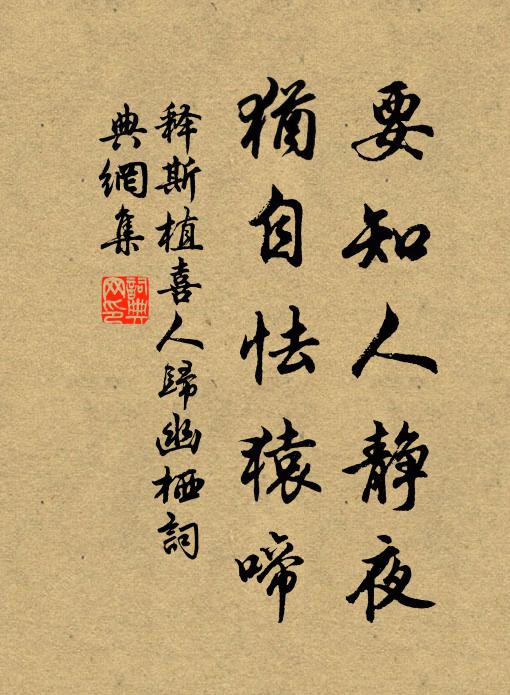 要知人静夜
猶自怯猿啼
释斯植喜人歸幽栖詞
典網集
詞典网印